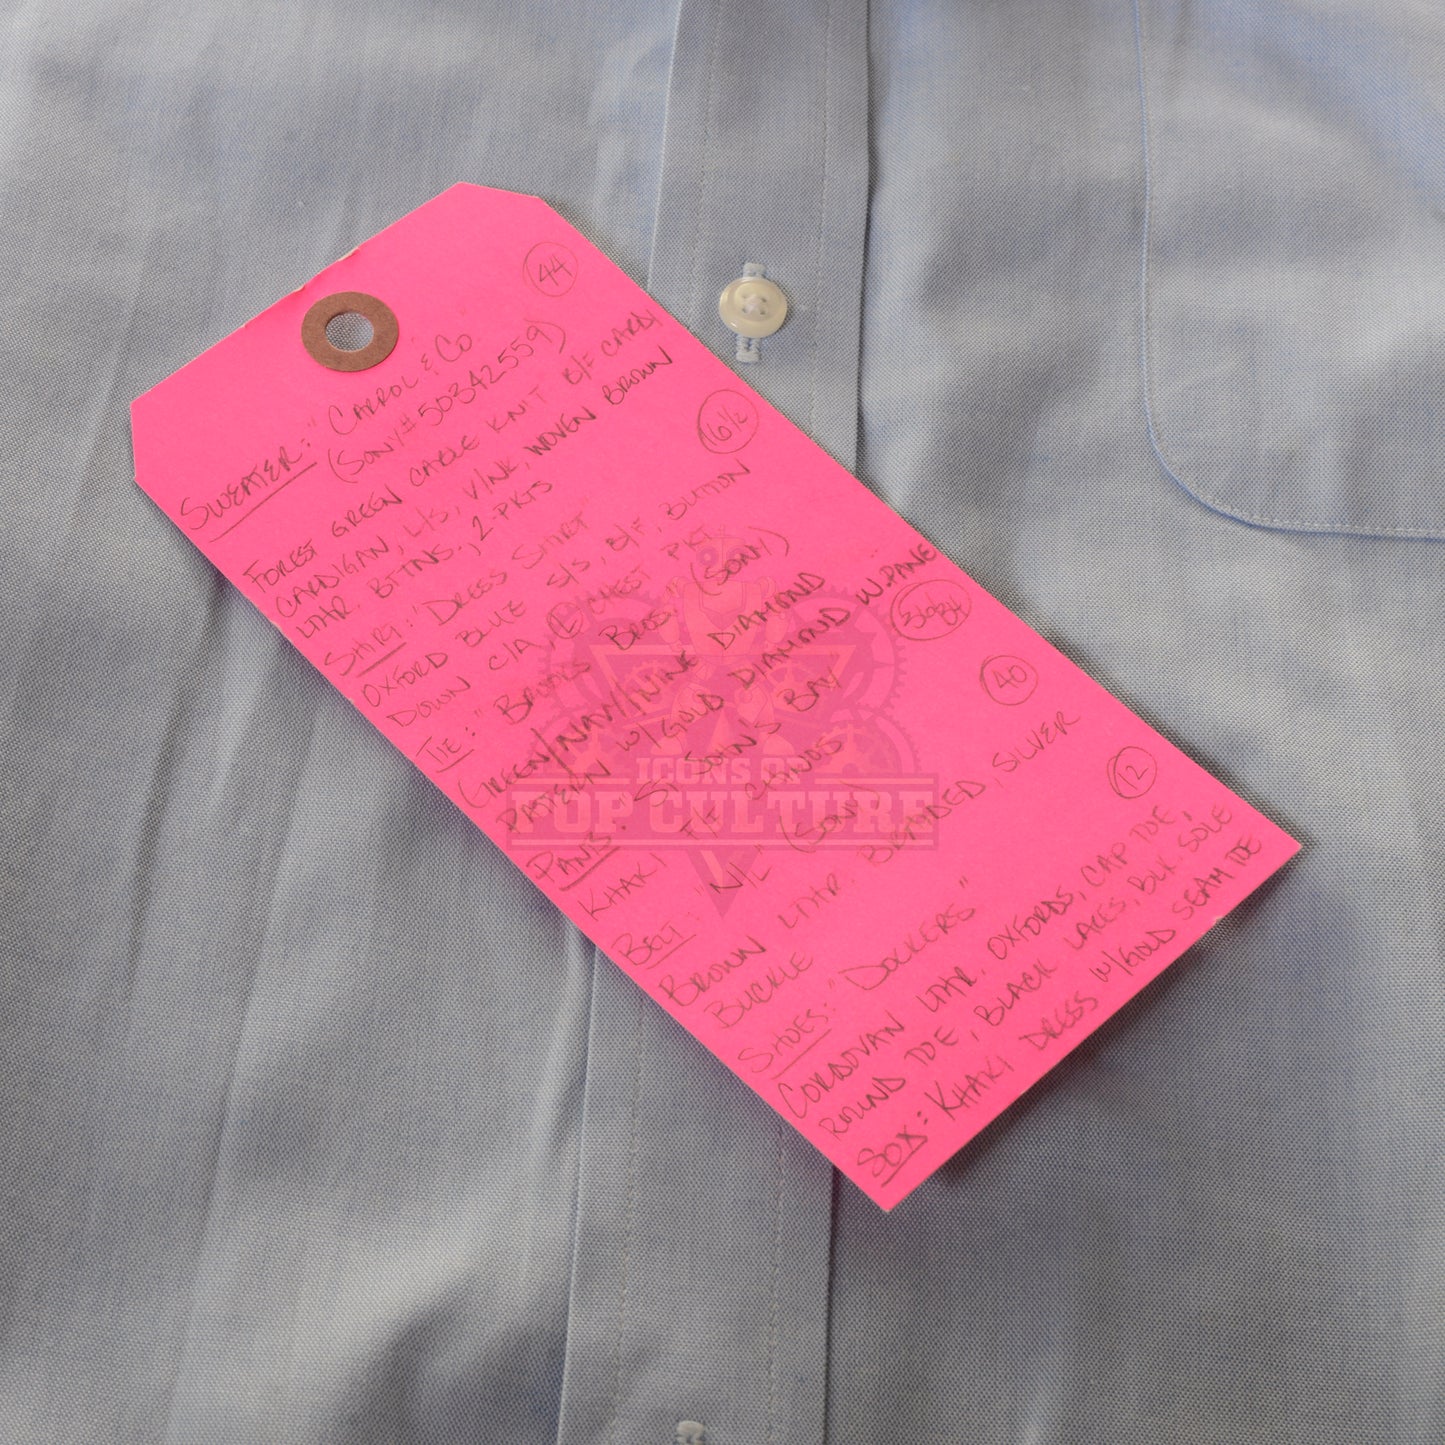 44
SWEATER: "CARROL & CO
(SONY# 50342559)
FOREST GREEN CABLE KNIT B/F CARDI
CARDIGAN, L/S, V/NK, WOVEN BROWN
LTHR. BTTNS., 2-PKTS
16 1/2
SHIRT: "DRESS SHIRT"
OXFORD BLUE S/S, B/F, BUTTON
DOWN C/A L CHEST PKT.
TIE: "BROOKS BROS." (SONY)
GREEN/NAVY/WINE DIAMOND
PATTERN W/ GOLD DIAMOND W.PANE
PANTS: ST. JOHN'S BAY
KHAKI F/F CHINOS
40
BELT: "N/L" (SONY)
BROWN LTHR. BRAIDED, SILVER
BUCKLE
12
SHOES: "DOCKERS"
CORDOVAN LTHR. OXFORDS, CAP TOE,
ROUND TOE, BLACK LACES, BLK. SOLE
SOX: KHAKI DRESS W/GOLD SEAM TOE
ICONS OF
POP CULTURE